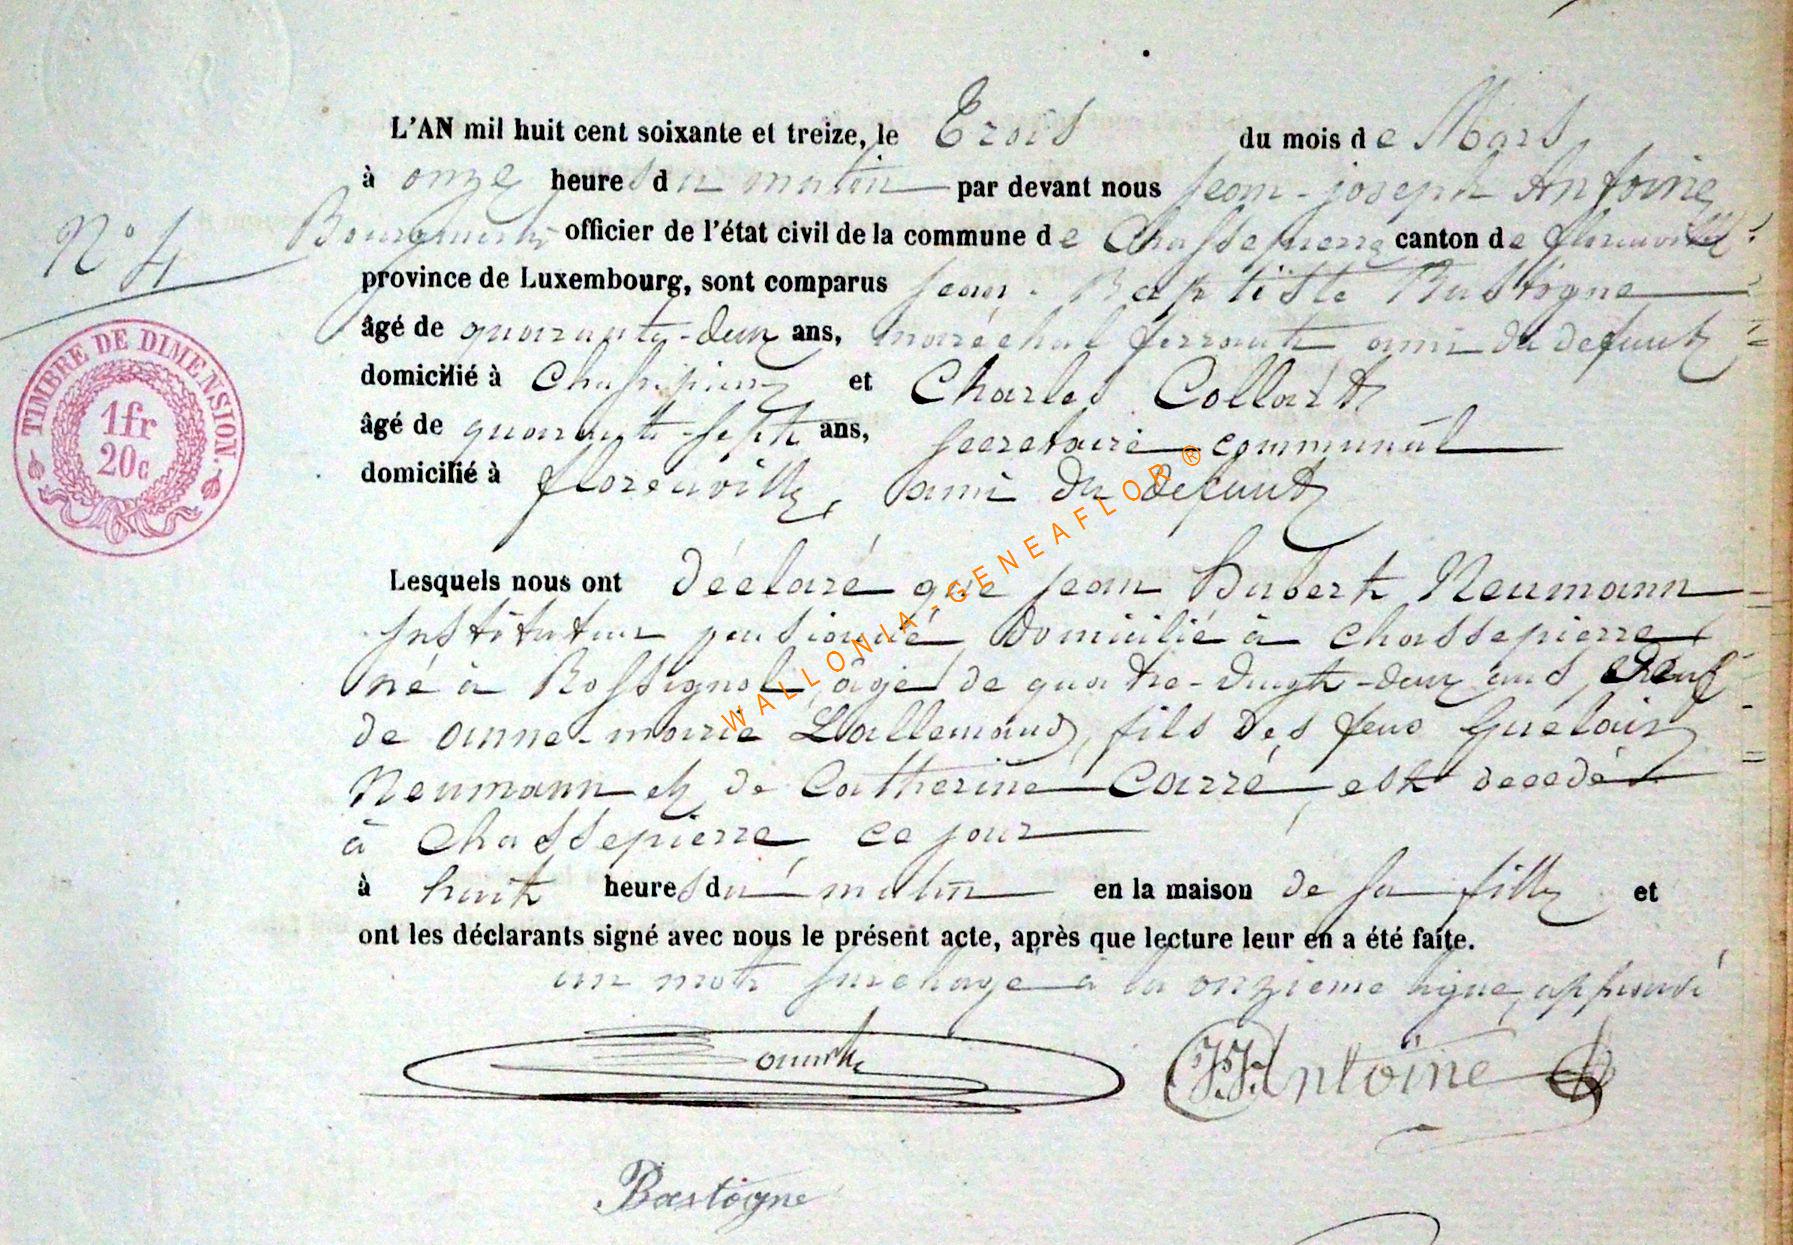 L'AN mil huit cent soixante et treize, le Trois du mois de Mars
à onze heures du matin par devant nous Jean-joseph Antoine
N° 4
Bourgmestre officier de l'état civil de la commune de Chassepierre canton de florenville
province de Luxembourg, sont comparus Jean-Baptiste Bastogne
âgé de quarante-deux ans, maréchal ferrant ami du défunt
domicilié à Chassepierre et Charles Collard
âgé de quarante-sept ans, secretaire communal
domicilié à florenville, ami du defunt
TIMBRE DE DIMENSION.
1fr
20c
WALLONIA-GENEAFLOR®
Lesquels nous ont déclaré que jean hubert Neumann
Instituteur pensionné, Domicilié à Chassepierre
né à Rossignol, âgé de quatre-vingt-deux ans, veuf
de anne-marie Lallemand, fils des feus
Neumann et de Catherine Carré, est decedé
à Chassepierre ce jour
à huit heures du matin en la maison de sa fille et
ont les déclarants signé avec nous le présent acte, après que lecture leur en a été faite.
un mot surchargé à la onzième ligne, approuvé
J.J. Antoine
Bastogne